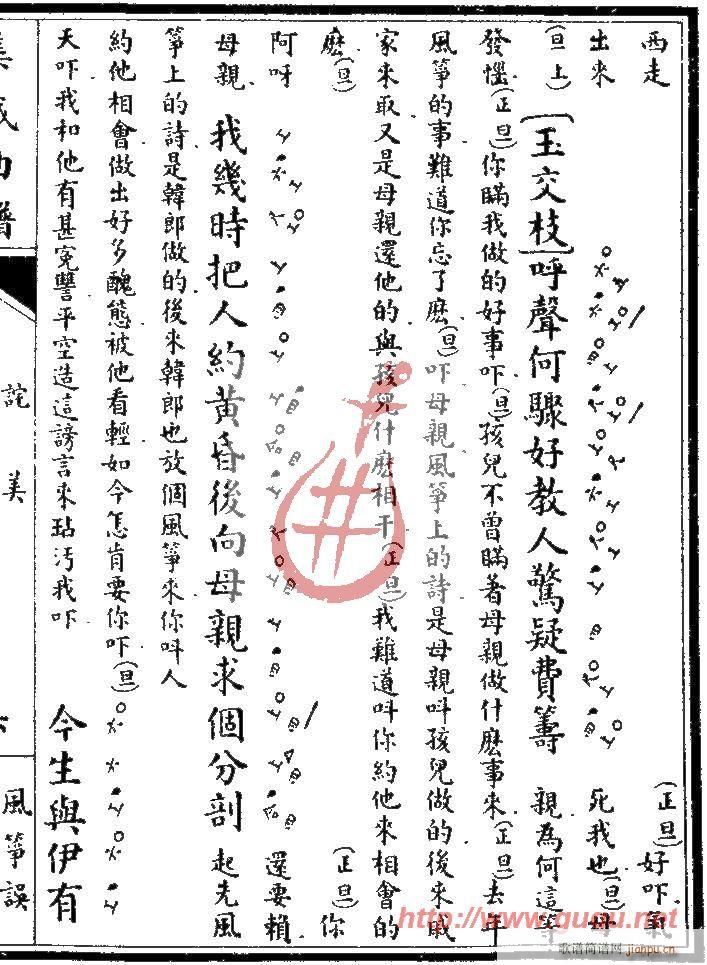 西走 (正旦)好吓氣
出來 死我也(旦)母
(旦上)【玉交枝】呼聲何驟好教人驚疑費籌 親為何這等
發惱(正旦)你瞞我做的好事吓(旦)孩兒不曾瞞着母親做什麽事來(正旦)去年
風箏的事難道你忘了麽(旦)吓母親風箏上的詩是母親呌孩兒做的後來戚
家來取又是母親還他的與孩兒什麽相干(正旦)我難道呌你約他來相會的
麽(旦) (正旦)你
阿呀 還要賴
母親 我幾時把人約黃昏後向母親求個分剖 起先風
箏上的詩是韓郎做的後來韓郎也放個風箏來你呌人
約他相會做出好多醜態被他看輕如今怎肯要你吓(旦)
天吓我和他有甚寃讐平空造這謗言來玷汚我吓 今生與伊有
集成曲譜
詫美
風箏誤
http://www.ququ.net.cn
歌谱简谱网
jianpu.cn